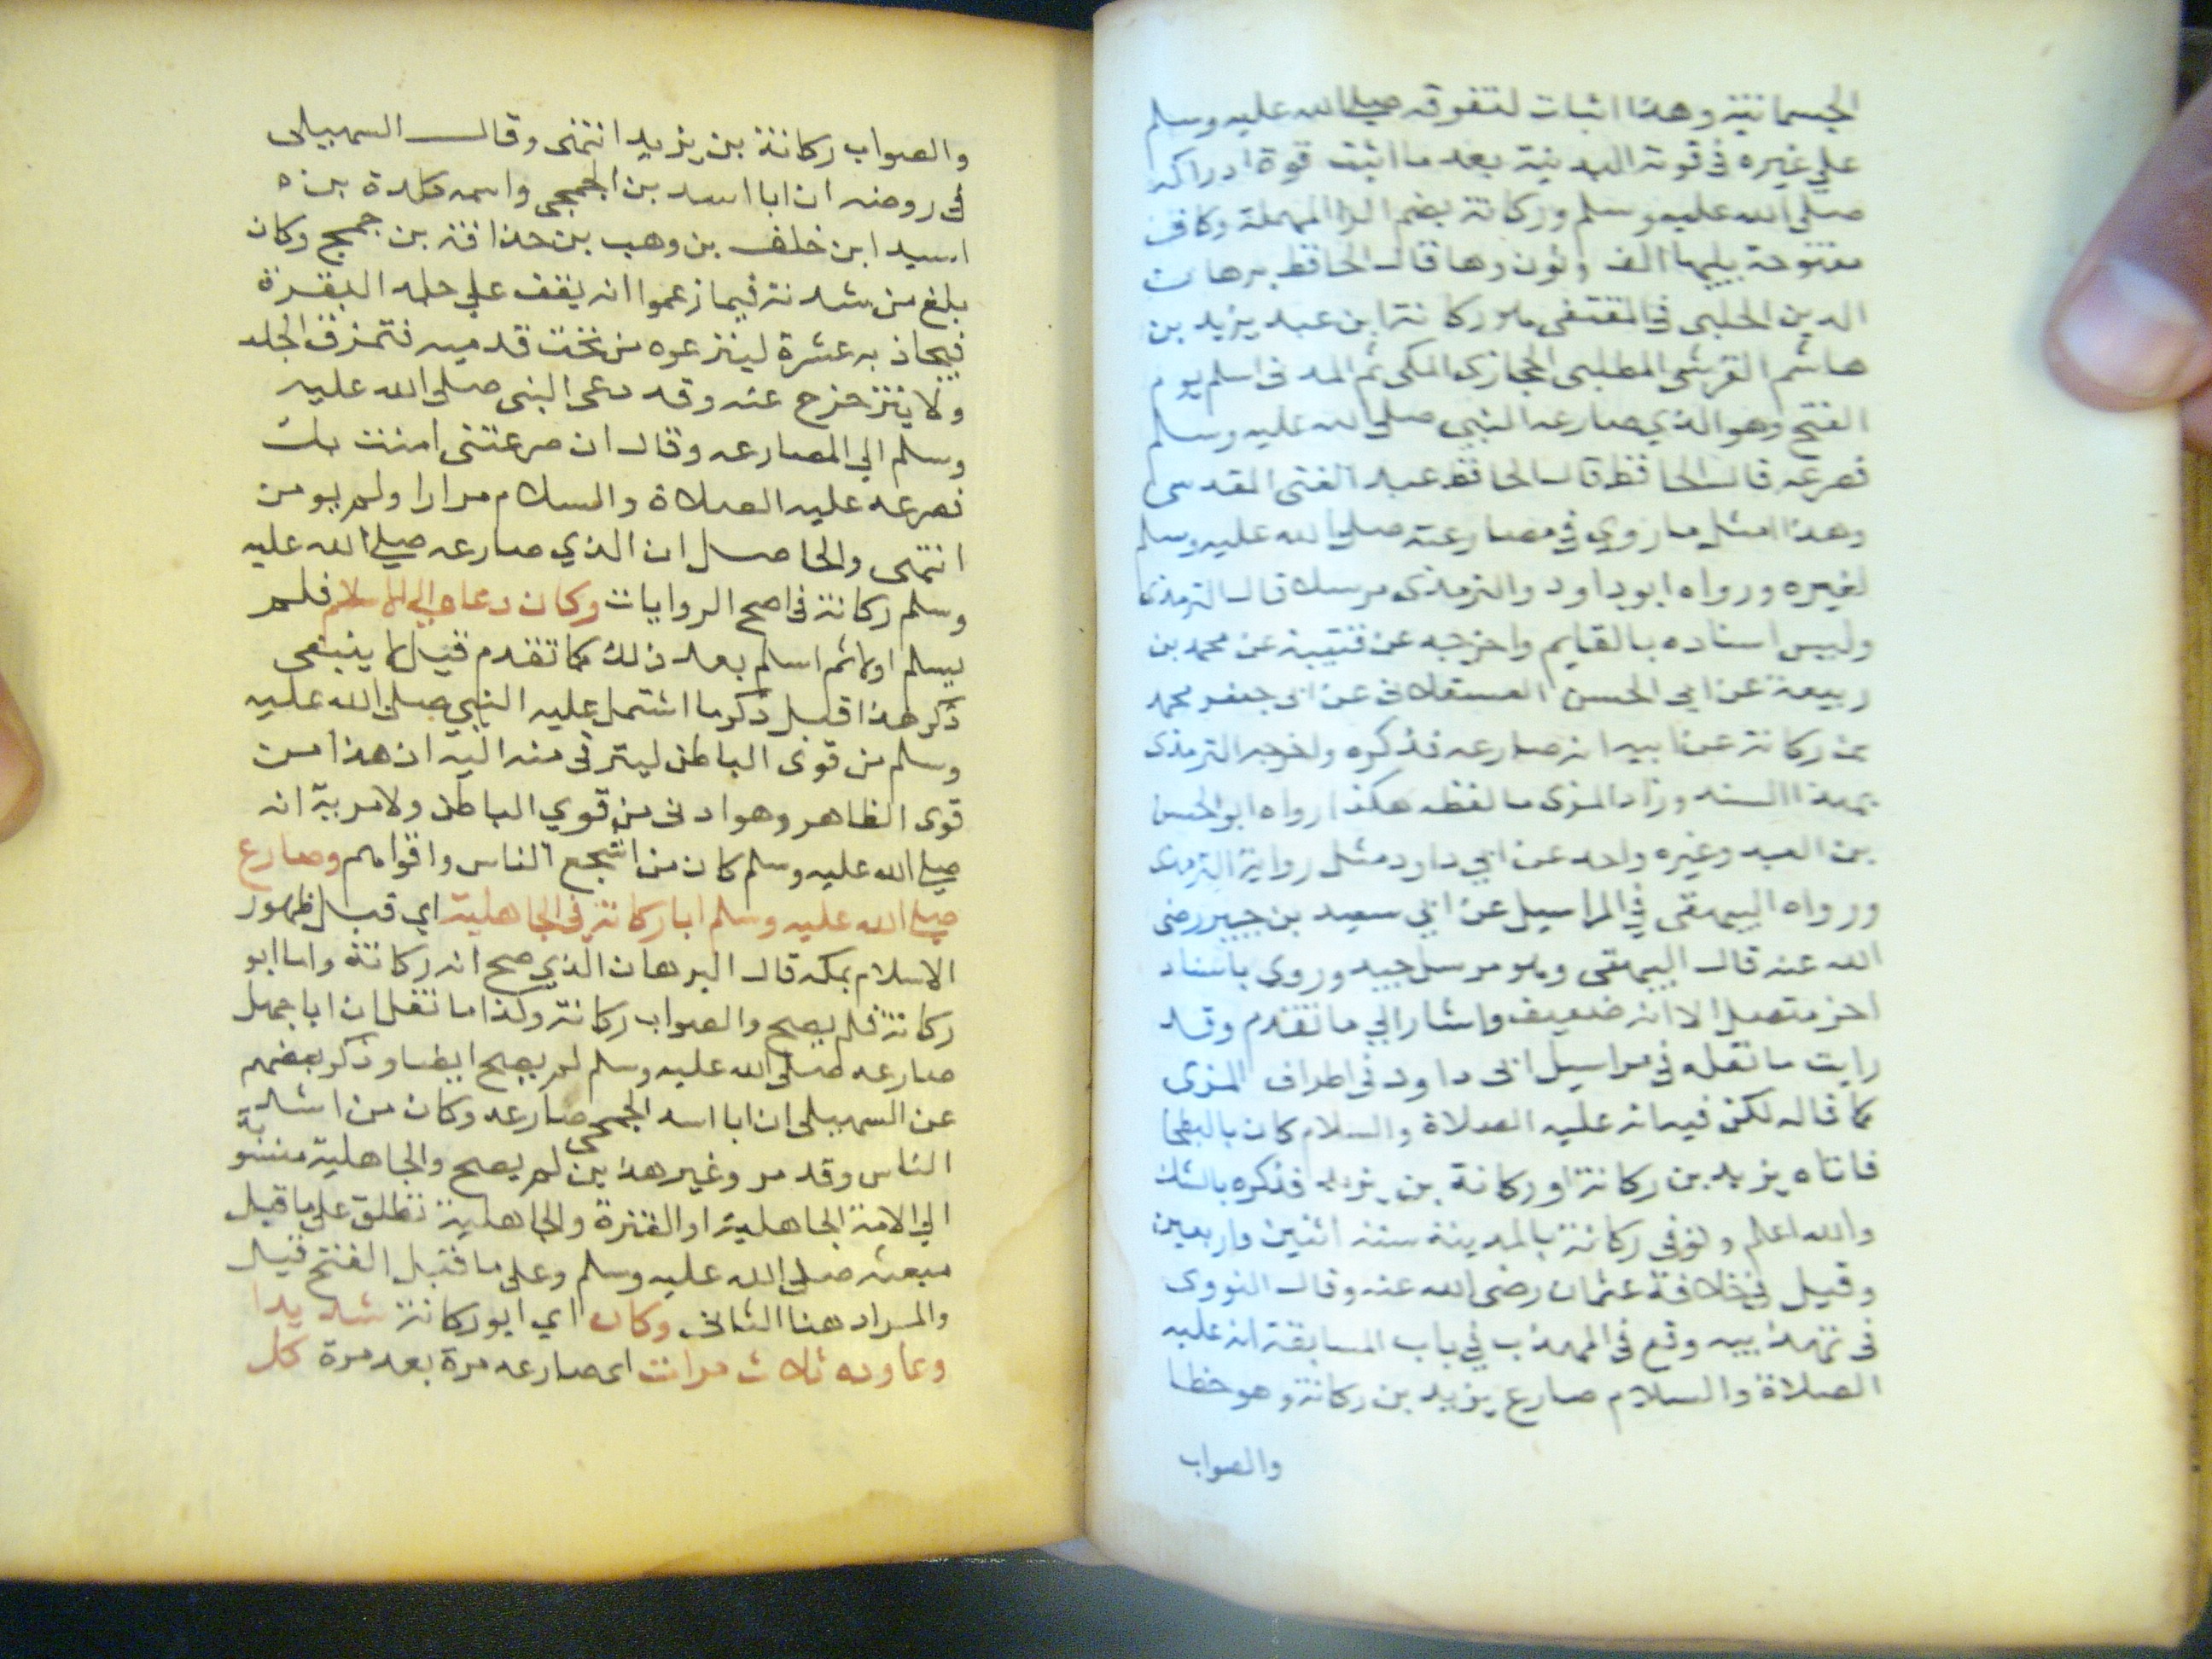 الجسمانية وهذا اثبات لتفوقه صلي الله عليه وسلم
علي غيره في قوته البدنية بعد ما اثبت قوة ادراكه
صلي الله عليه وسلم وركانة بضم الرا المهملة وكاف
مفتوحة يليها الف ونون وها قال الحافظ برهان
الدين الحلبي في المقتفي هو ركانة ابن عبد يزيد بن
هاشم القرشي المطلبي الحجازي المكي ثم المدني اسلم يوم
الفتح وهو الذي صارعه النبي صلي الله عليه وسلم
فصرعه قال الحافظ قال الحافظ عبد الغني المقدسي
وهذا امثل ما روي في مصارعته صلي الله عليه وسلم
لغيره ورواه ابو داود والترمذي مرسلا قال الترمذي
وليس اسناده بالقايم واخرجه عن قتيبة عن محمد بن
ربيعة عن ابي الحسن العسقلاني عن ابي جعفر محمد
بن ركانة عن ابيه انه صارعه فذكره واخرجه الترمذي
بهذا السند وزاد المزي ما لفظه هكذا رواه ابو الحسن
بن العبد وغيره واحد عن ابي داود مثل رواية الترمذي
ورواه البيهقي في المراسيل عن ابي سعيد بن جبير رضي
الله عنه قال البيهقي وهو مرسل جيد وروي باسناد
اخر متصل الا انه ضعيف واشار الي ما تقدم وقد
رايت ما نقله في مراسيل ابي داود في اطراف المزي
كما قاله لكن فيه انه عليه الصلاة والسلام كان بالبطحا
فاتاه يزيد بن ركانة او ركانة بن يزيد فذكره بالشك
والله اعلم وتوفي ركانة بالمدينة سنة اثنين واربعين
وقيل في خلافة عثمان رضي الله عنه وقال النووي
في تهذيبه وقع في المهذب في باب المسابقة انه عليه
الصلاة والسلام صارع يزيد بن ركانة وهو خطا
والصواب
والصواب ركانة بن يزيد انتهى وقال السهيلي
في روضه ان ابا اسد بن الجمحي واسمه كلدة بن
اسيد ابن خلف بن وهب بن حذافة بن جمح وكان
بلغ من شدته فيما زعموا انه يقف علي جلد البقرة
فيجاذبه عشرة لينزعوه من تحت قدميه فتمزق الجلد
ولا يتزحزح عنه وقد دعي النبي صلي الله عليه
وسلم الي المصارعه وقال ان صرعتني امنت بك
فصرعه عليه الصلاة والسلام مرارا ولم يومن
انتهى والحاصل ان الذي صارعه صلي الله عليه
وسلم ركانة في اصح الروايات وكان دعاه الي الاسلام فلم
يسلم اولا ثم اسلم بعد ذلك كما تقدم قيل لا ينبغي
ذكر هذا قبل ذكر ما اشتمل عليه النبي صلي الله عليه
وسلم من قوي الباطن ليترقي منه اليه اذ هذا من
قوي الظاهر وهو ادني من قوي الباطن ولا مرية انه
صلي الله عليه وسلم كان من اشجع الناس واقواهم وصارع
صلي الله عليه وسلم ابا ركانة في الجاهلية اي قبل ظهور
الاسلام بمكه قال البرهان الذي صح انه ركانة واما ابو
ركانة فلم يصح والصواب ركانة وكذا ما نقل ان ابا جهل
صارعه صلي الله عليه وسلم لم يصح ايضا وذكر بعضهم
عن السهيلي ان ابا اسد الجمحي صارعه وكان من اشد
الناس وقد مر وغير هذين لم يصح والجاهلية منسوبة
الي الامة الجاهلية او الفترة والجاهلية تطلق علي ما قبل
مبعثه صلي الله عليه وسلم وعلي ما قبل الفتح قيل
والمراد هنا الثاني وكان اي ابو ركانة شديدا
وعاوده ثلاث مرات اي صارعه مرة بعد مرة كل